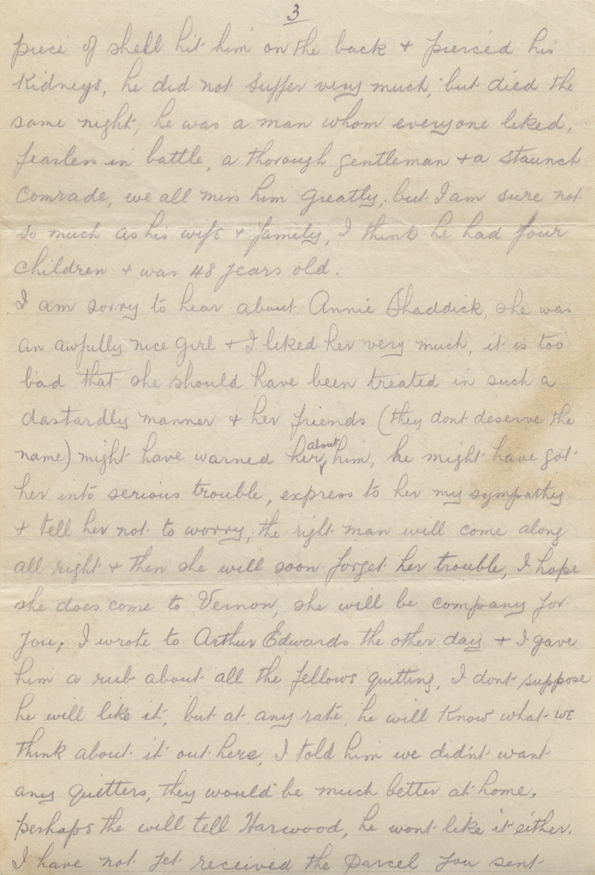 3
piece of shell hit him on the back & pierced his
kidneys, he did not suffer very much, but died the
same night, he was a man whom everyone liked,
fearless in battle, a thorough gentleman & a staunch
comrade, we all miss him greatly, but I am sure not
so much as his wife & family, I think he had four
children & was 48 years old.
I am sorry to hear about Annie Shaddick, she was
an awfully nice girl & I liked her very much, it is too
bad that she should have been treated in such a
dastardly manner & her friends (they dont deserve the
name) might have warned her about him, he might have got
her into serious trouble, express to her my sympathy
& tell her not to worry, the right man will come along
all right & then she will soon forget her trouble, I hope
she does come to Vernon, she will be company for
you, I wrote to Arthur Edwards the other day & I gave
him a rub about all the fellows quitting, I dont suppose
he will like it, but at any rate he will know what we
think about it out here, I told him we didn't want
any quitters, they would be much better at home.
perhaps the will tell Harwood, he wont like it either.
I have not yet received the parcel you sent